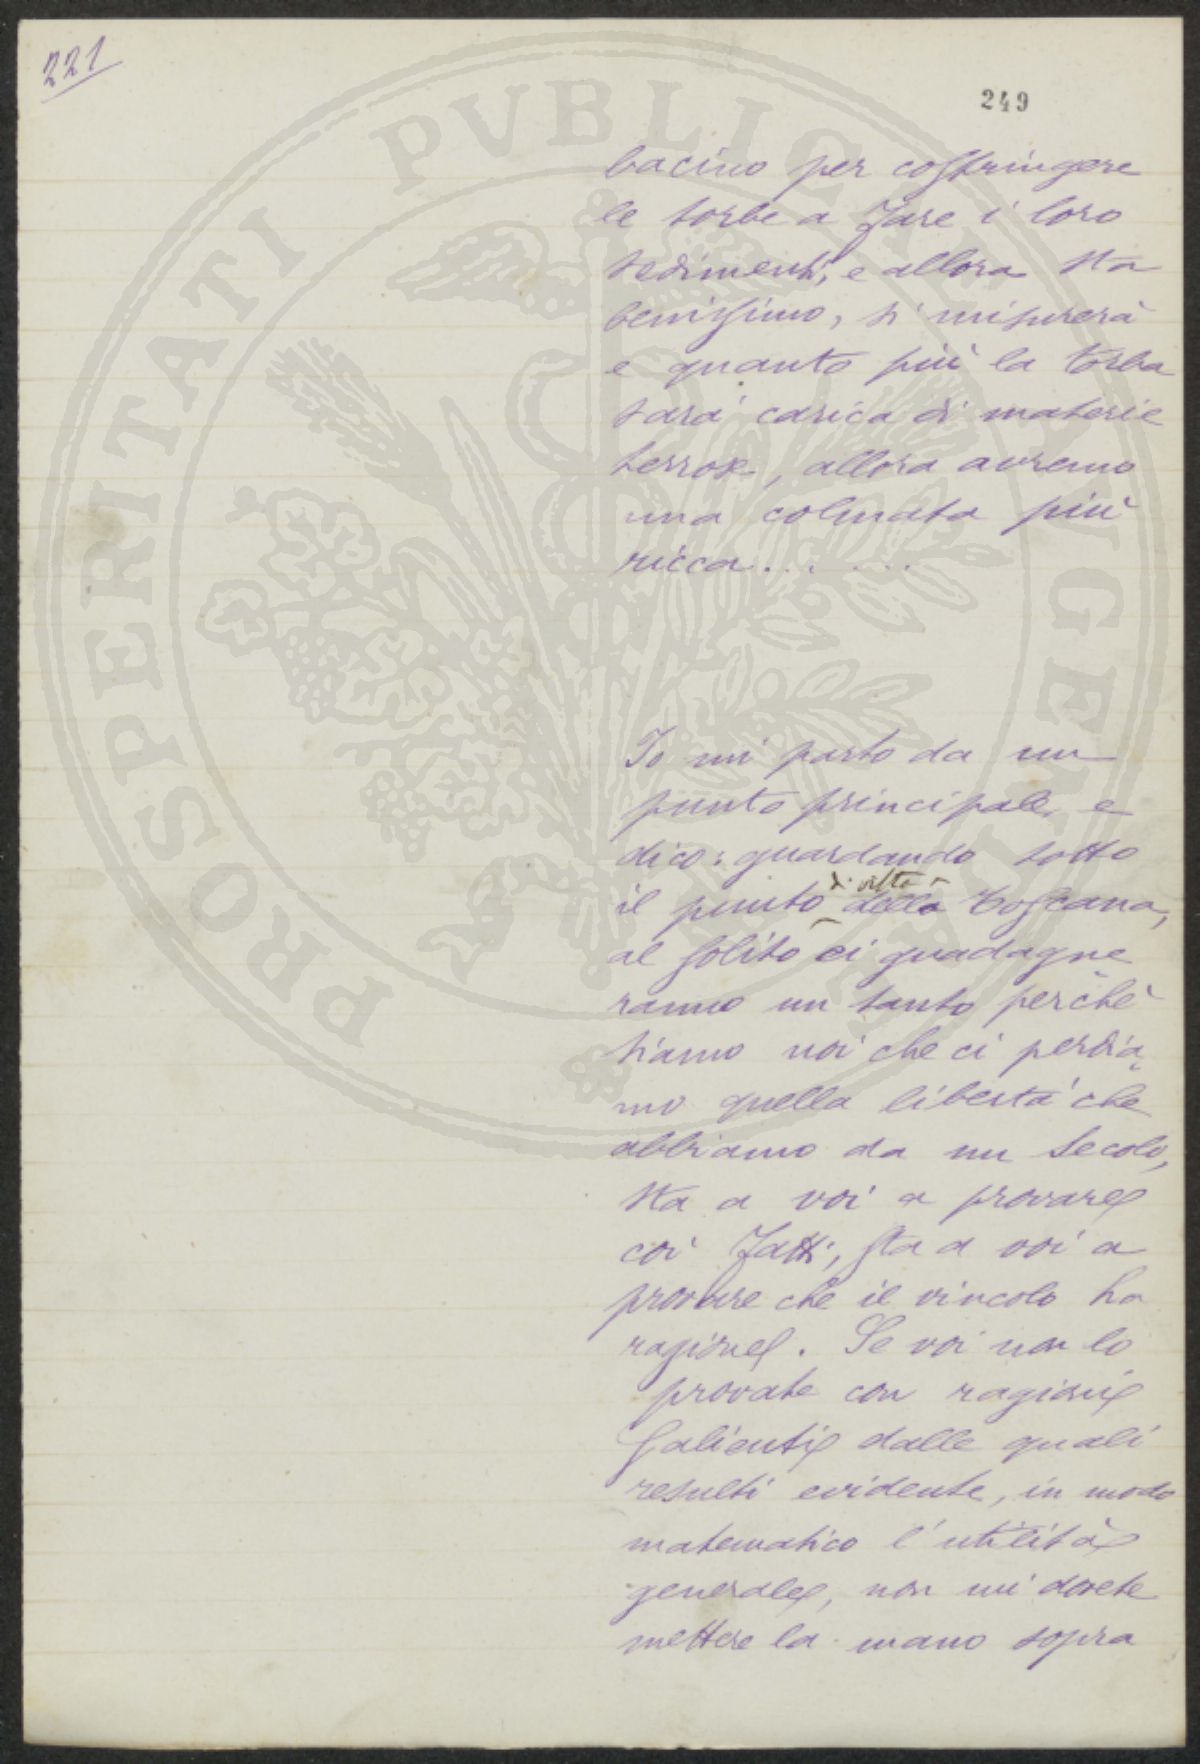 221
249
bacino per costringere
le torbe a fare i loro
sedimenti, e allora sta
benissimo, si misurerà
e quanto più la torba
sarà carica di materie
terrose, allora avremo
una colmata più
ricca.......
Io mi parto da un
punto principale e
dico: guardando sotto
il punto di vista della Toscana,
al solito ci guadagne
ranno un tanto perchè
siamo noi che ci perdia
mo quella libertà che
abbiamo da un secolo,
sta a voi a provare
coi fatti, sta a voi a
provare che il vincolo ha
ragione. Se voi non lo
provate con ragioni
salienti dalle quali
resulti evidente, in modo
matematico l'utilità
generale, non mi dovete
mettere la mano sopra
PROSPERITATI PVBLICAE AVGENDAE